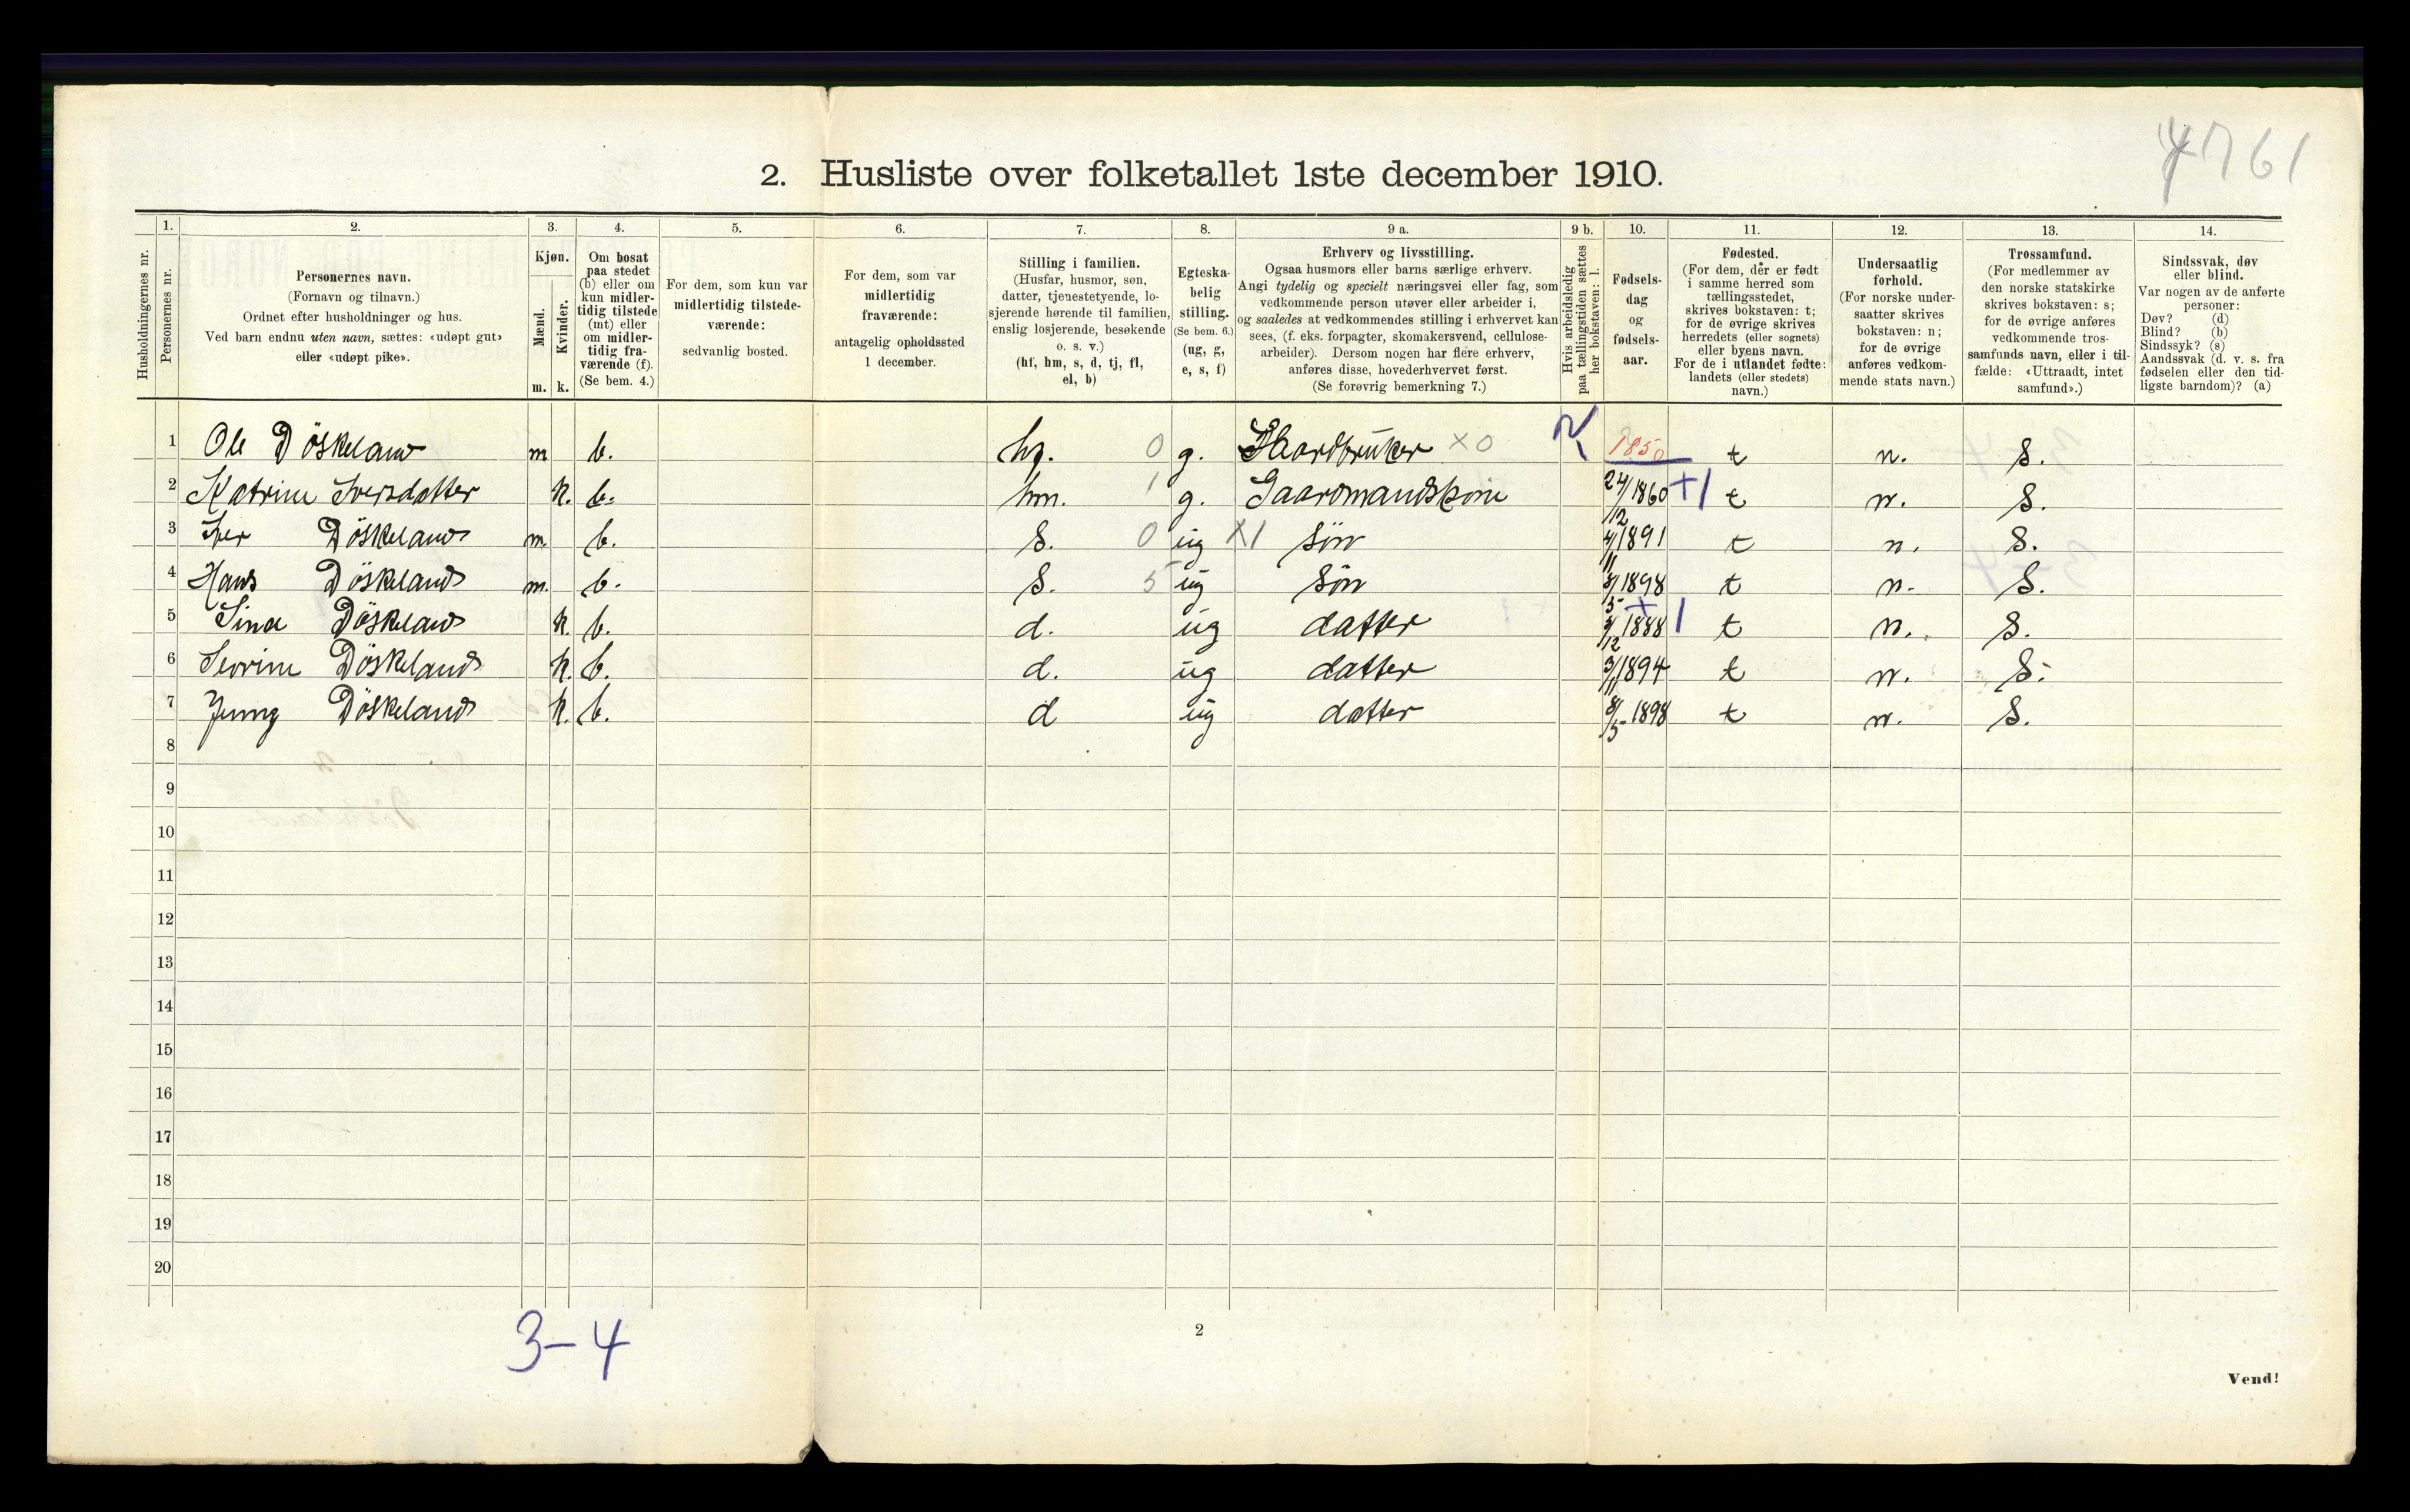 2. Husliste over folketallet 1ste december 1910.
Husholdningernes nr.
1. Personernes nr.
2. Personernes navn.
(Fornavn og tilnavn.)
Ordnet efter husholdninger og hus.
Ved barn endnu uten navn, sættes: «udøpt gut»
eller «udøpt pike».
3. Kjøn.
Mænd. Kvinder.
m. k.
4. Om bosat
paa stedet
(b) eller om
kun midler-
tidig tilstede
(mt) eller
om midler-
tidig fra-
værende (f).
(Se bem. 4.)
5. For dem, som kun var
midlertidig tilstede-
værende:
sedvanlig bosted.
6. For dem, som var
midlertidig
fraværende:
antagelig opholdssted
1 december.
7. Stilling i familien.
(Husfar, husmor, søn,
datter, tjenestetyende, lo-
sjerende hørende til familien,
enslig losjerende, besøkende
o. s. v.)
(hf, hm, s, d, tj, fl,
el, b)
8. Egteska-
belig
stilling.
(Se bem. 6.)
(ug, g,
e, s, f)
9 a. Erhverv og livsstilling.
Ogsaa husmors eller barns særlige erhverv.
Angi tydelig og specielt næringsvei eller fag, som
vedkommende person utøver eller arbeider i,
og saaledes at vedkommendes stilling i erhvervet kan
sees, (f. eks. forpagter, skomakersvend, cellulose-
arbeider). Dersom nogen har flere erhverv,
anføres disse, hovederhvervet først.
(Se forøvrig bemerkning 7.)
9 b. Hvis arbeidsledig
paa tællingstiden sættes
her bokstaven: l.
10. Fødsels-
dag
og
fødsels-
aar.
11. Fødested.
(For dem, der er født
i samme herred som
tællingsstedet,
skrives bokstaven: t;
for de øvrige skrives
herredets (eller sognets)
eller byens navn.
For de i utlandet fødte:
landets (eller stedets)
navn.)
12. Undersaatlig
forhold.
(For norske under-
saatter skrives
bokstaven: n;
for de øvrige
anføres vedkom-
mende stats navn.)
13. Trossamfund.
(For medlemmer av
den norske statskirke
skrives bokstaven: s;
for de øvrige anføres
vedkommende tros-
samfunds navn, eller i til-
fælde: «Uttraadt, intet
samfund».)
14. Sindssvak, døv
eller blind.
Var nogen av de anførte
personer:
Døv? (d)
Blind? (b)
Sindssyk? (s)
Aandssvak (d. v. s. fra
fødselen eller den tid-
ligste barndom)? (a)
1 Ole Döskeland m b. 0 g. Gaardbruker x0 1850 t n. S.
2 Katrine Iversdatter k. b. hm. 1 g. Gaardmandskone 24/12 1860 +1 t n. S.
3 Iver Döskeland m. b. S. 0 ug X1 sön 4/11 1891 t n. S.
4 Hans Döskeland m. b. S. 5 ug sön 8/5 1898 t n. S.
5 Sina Döskeland k. b. d. ug datter 1888 +1 t n. S.
6 Severine Döskeland k. b. d. ug datter 3/11 1894 t n. S.
7 Döskeland k. b. d ug datter 8/5 1898 t n. S.
8
9
10
11
12
13
14
15
16
17
18
19
20
3-4
2
Vend!